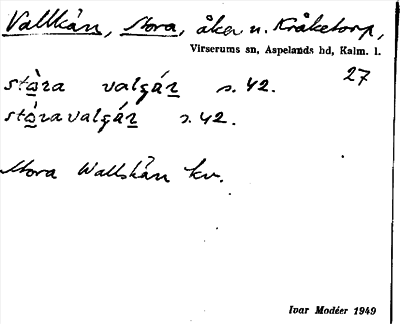 Vallkån, Stora, åker n. Kråketorp,
Virserums sn, Aspelands hd, Kalm. l.
27
stò̱ra valgáṉ s. 42.
stò̱ravalgáṉ s. 42.
Stora Wallskån kv.
Ivar Modéer 1949